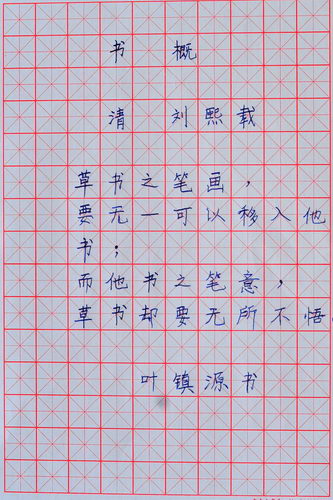 书概
清 刘熙载
草书之笔画，
要无一可以移入他
书；
而他书之笔意，
草书却要无所不悟。
叶镇源书